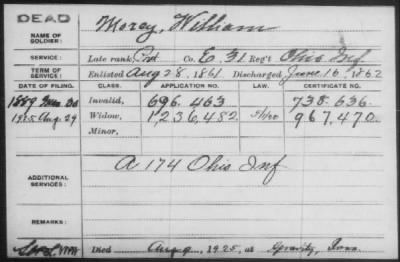 DEAD
NAME OF SOLDIER: Morey, William
SERVICE: Late rank Pvt Co. E. 31 Reg't Ohio Inf
TERM OF SERVICE: Enlisted Aug 28, 1861 Discharged June 16, 1862
DATE OF FILING. CLASS. APPLICATION NO. LAW. CERTIFICATE NO.
1889 Invalid, 696,463 738,636
1925 Aug. 29 Widow, 1,236,482 967,470
Minor,
A 174 Ohio Inf
ADDITIONAL SERVICES:
REMARKS:
Died Aug 9, 1925, at Gravity, Iowa